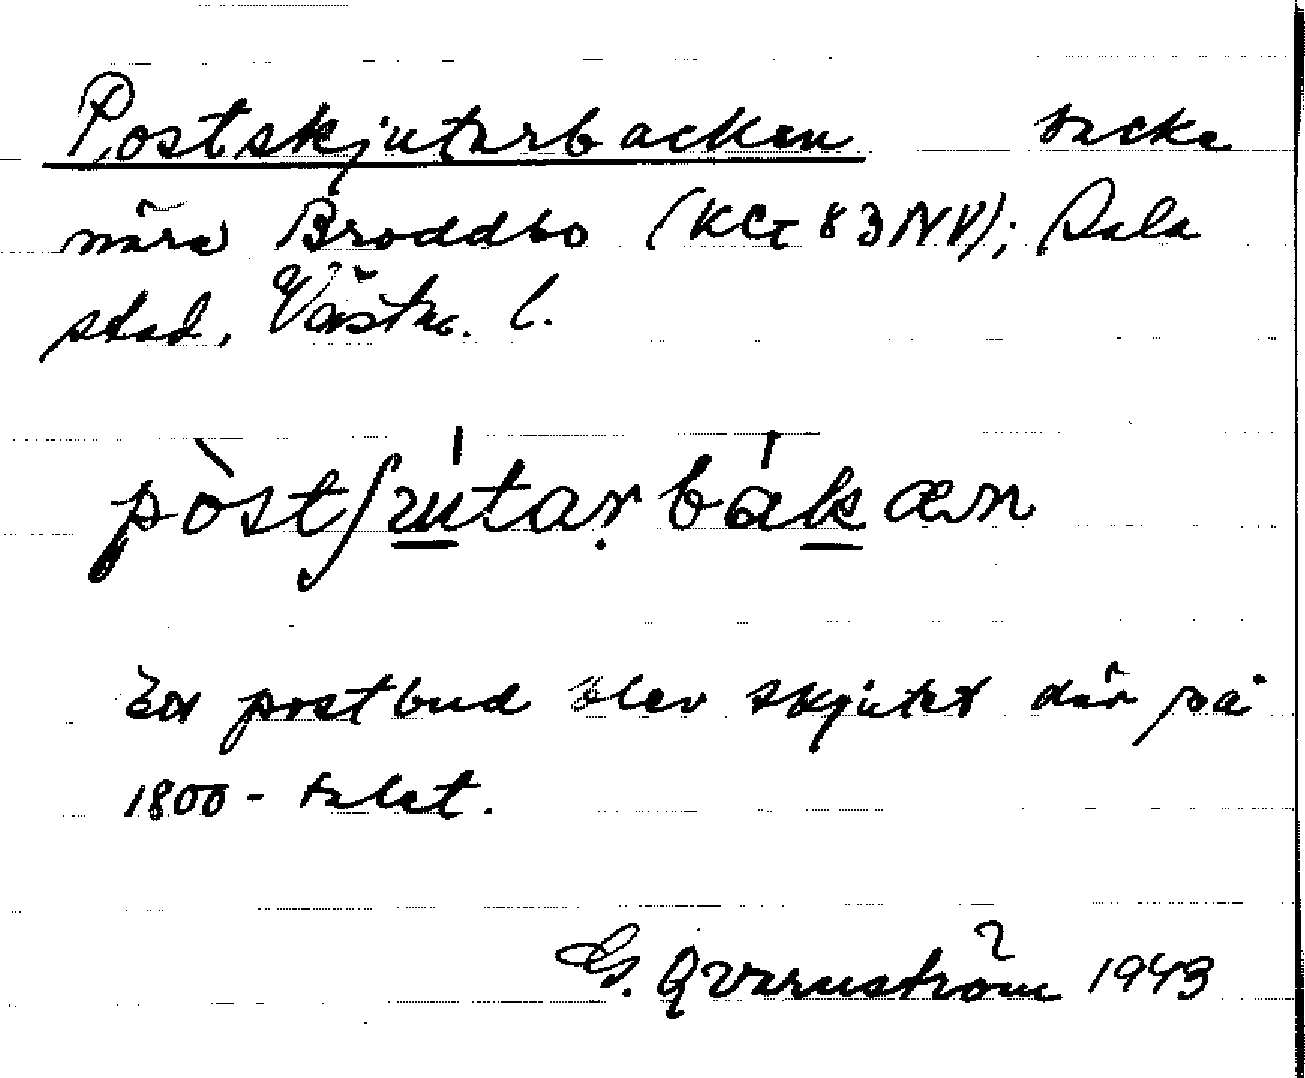 Postskjutarbacken backe
nära Broddbo (KG 83 NV); Sala
stad, Västm. l.
pòstʃútaṛbákæn
En postbud blev skjutet där på
1800-talet.
G. Qvarnström 1943